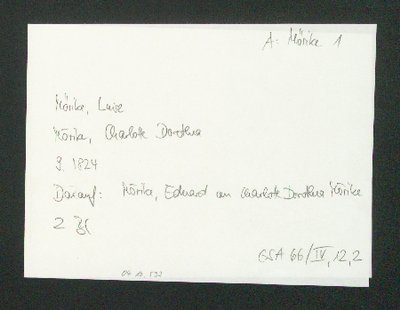 A: Mörike 1
Mörike, Luise
Mörike, Charlotte Dorothea
9. 1824
Darauf: Mörike, Eduard an Charlotte Dorothea Mörike
2 Bl
GSA 66/IV, 12,2